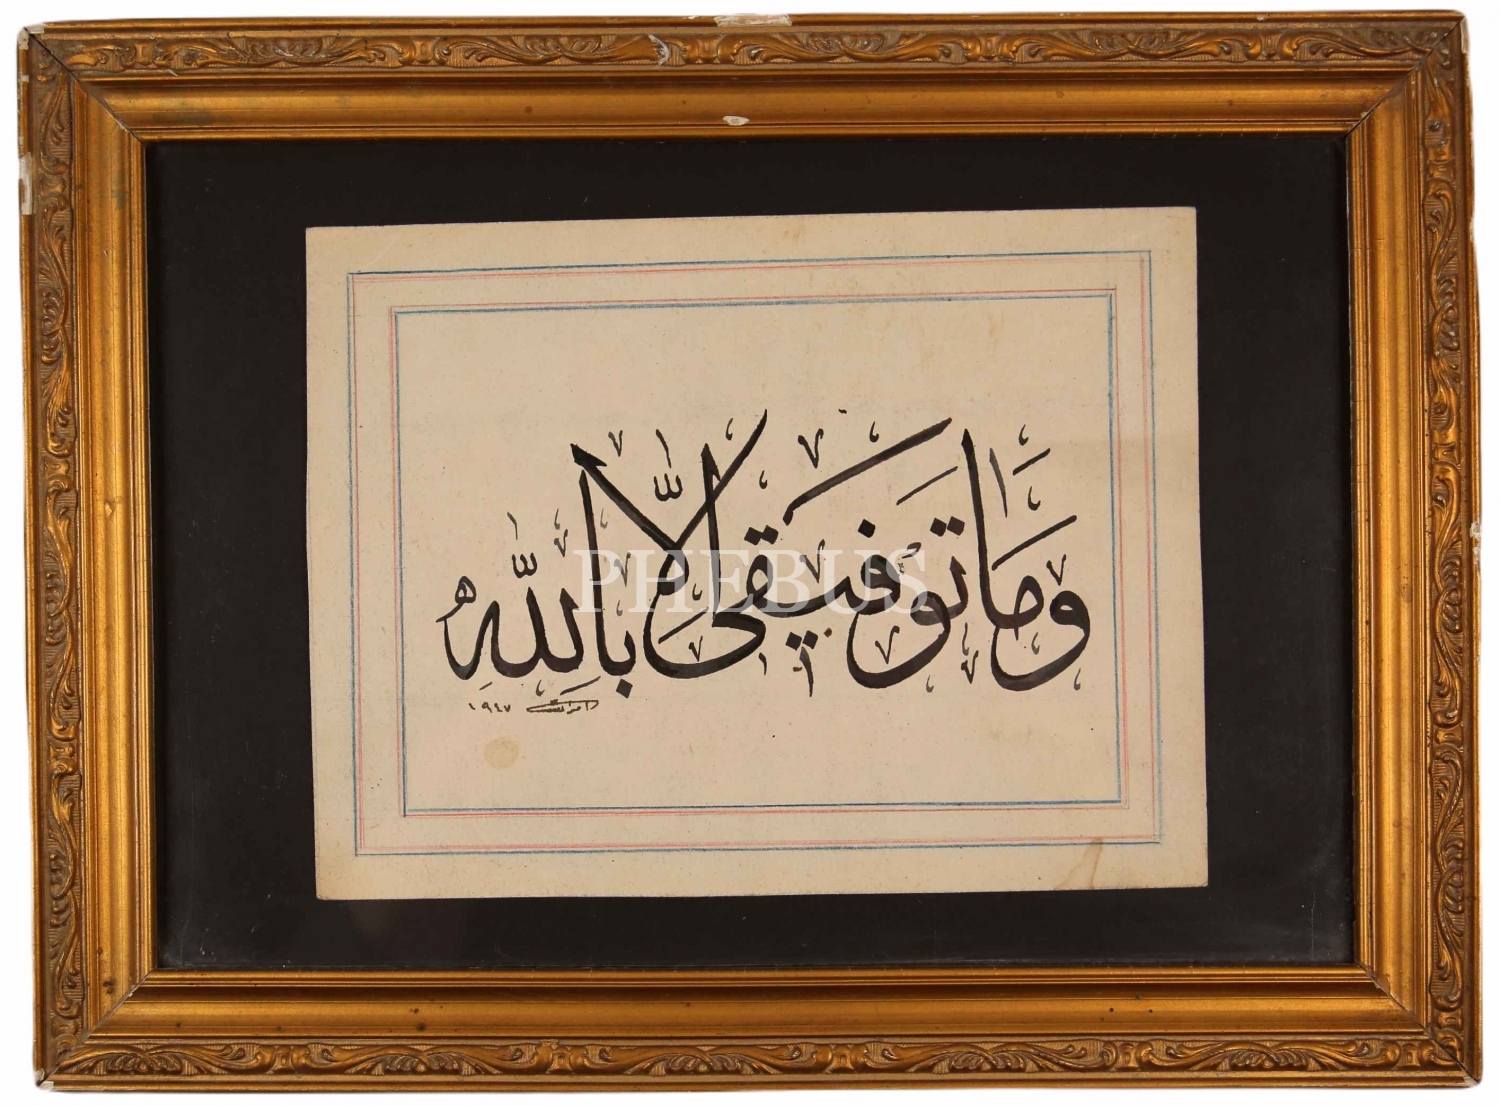 وَمَا تَوْفِيقِى اِلَّا بِاللّٰهِ
١٩٤٧
PHEBUS